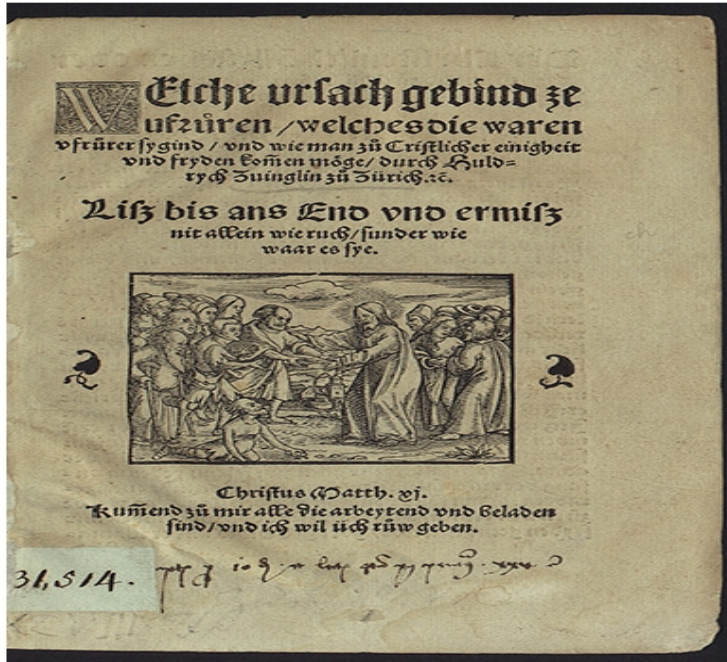 Welche ursach gebind ze
ufrůren / welches die waren
vfrürer sygind / vnd wie man zů Cristlicher einigheit
vnd fryden kom̄en möge / durch Huld⸗
rych Zuinglin zů Zürich.ꝛc̄.
Lisz bis ans End vnd ermisz
nit allein wie ruch / sunder wie
waar es sye.
Christus Matth. xj.
Kum̄end zů mir alle die arbeytend vnd beladen
sind / vnd ich wil üch růw geben.
31,514.